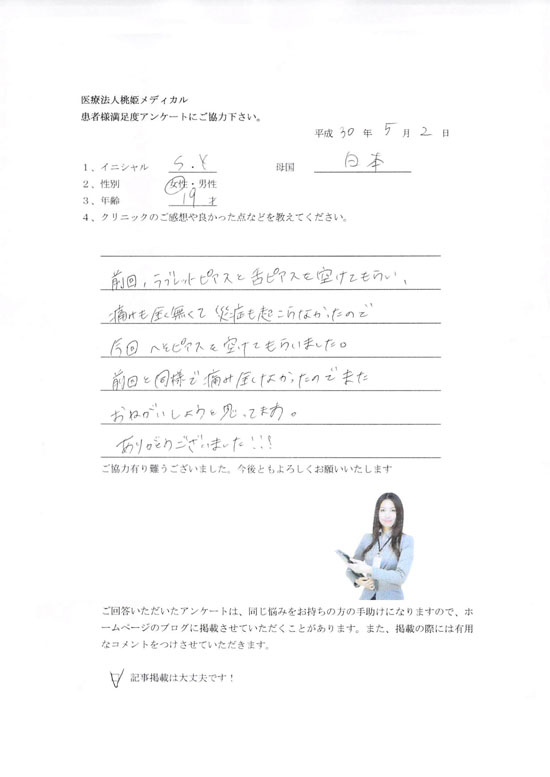 医療法人桃姫メディカル
患者様満足度アンケートにご協力下さい。
平成 30 年 5 月 2 日
1、イニシャル S.Y 母国 日本
2、性別 女性・男性
3、年齢 19才
4、クリニックのご感想や良かった点などを教えてください。
前回、ラブレットピアスと舌ピアスを空けてもらい、
痛みも全く無くて災症も起こらなかったので
今回へそピアスを空けてもらいました。
前回と同様で痛み全くなかったのでまた
おねがいしようと思ってます。
ありがとうございました!!!
ご協力有り難うございました。今後ともよろしくお願いいたします
ご回答いただいたアンケートは、同じ悩みをお持ちの方の手助けになりますので、ホ
ームページのブログに掲載させていただくことがあります。また、掲載の際には有用
なコメントをつけさせていただきます。
記事掲載は大丈夫です！